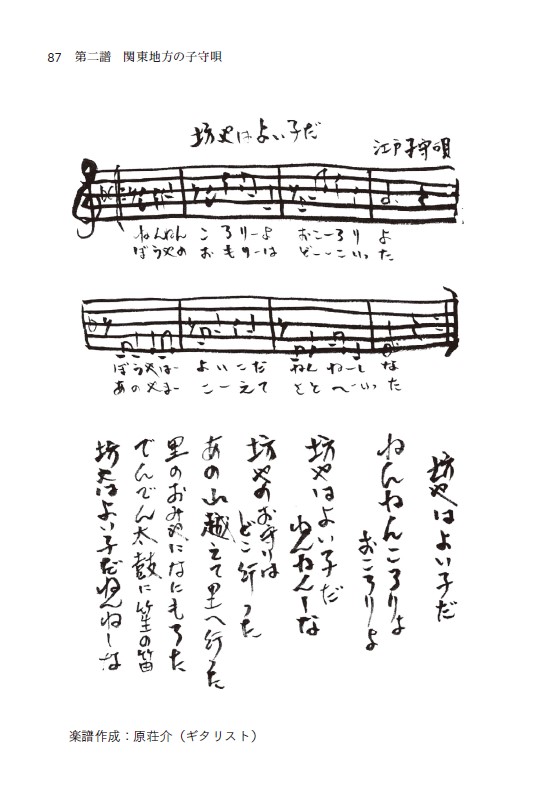 87 第二譜 関東地方の子守唄
坊やはよい子だ
江戸子守唄
ねんねん ころりーよ おこーろり よ
ぼうやの おもりーは どーこいっ た
ぼうやは よいこだ ねん ねーし な
あのやま こーえて さと へーいっ た
坊やはよい子だ
ねんねんころりよ
おころりよ
坊やはよい子だ
ねんねんーな
坊やのお守りは
どこ行った
あの山越えて里へ行った
里のおみやになにもろた
でんでん太鼓に笙の笛
坊やはよい子だねんねーな
楽譜作成：原荘介（ギタリスト）